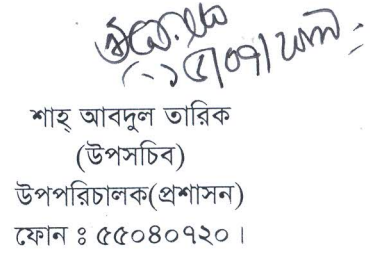 শাহ্ আবদুল তারিক
(উপসচিব)
উপপরিচালক(প্রশাসন)
ফোন ঃ ৫৫০৪০৭২০।